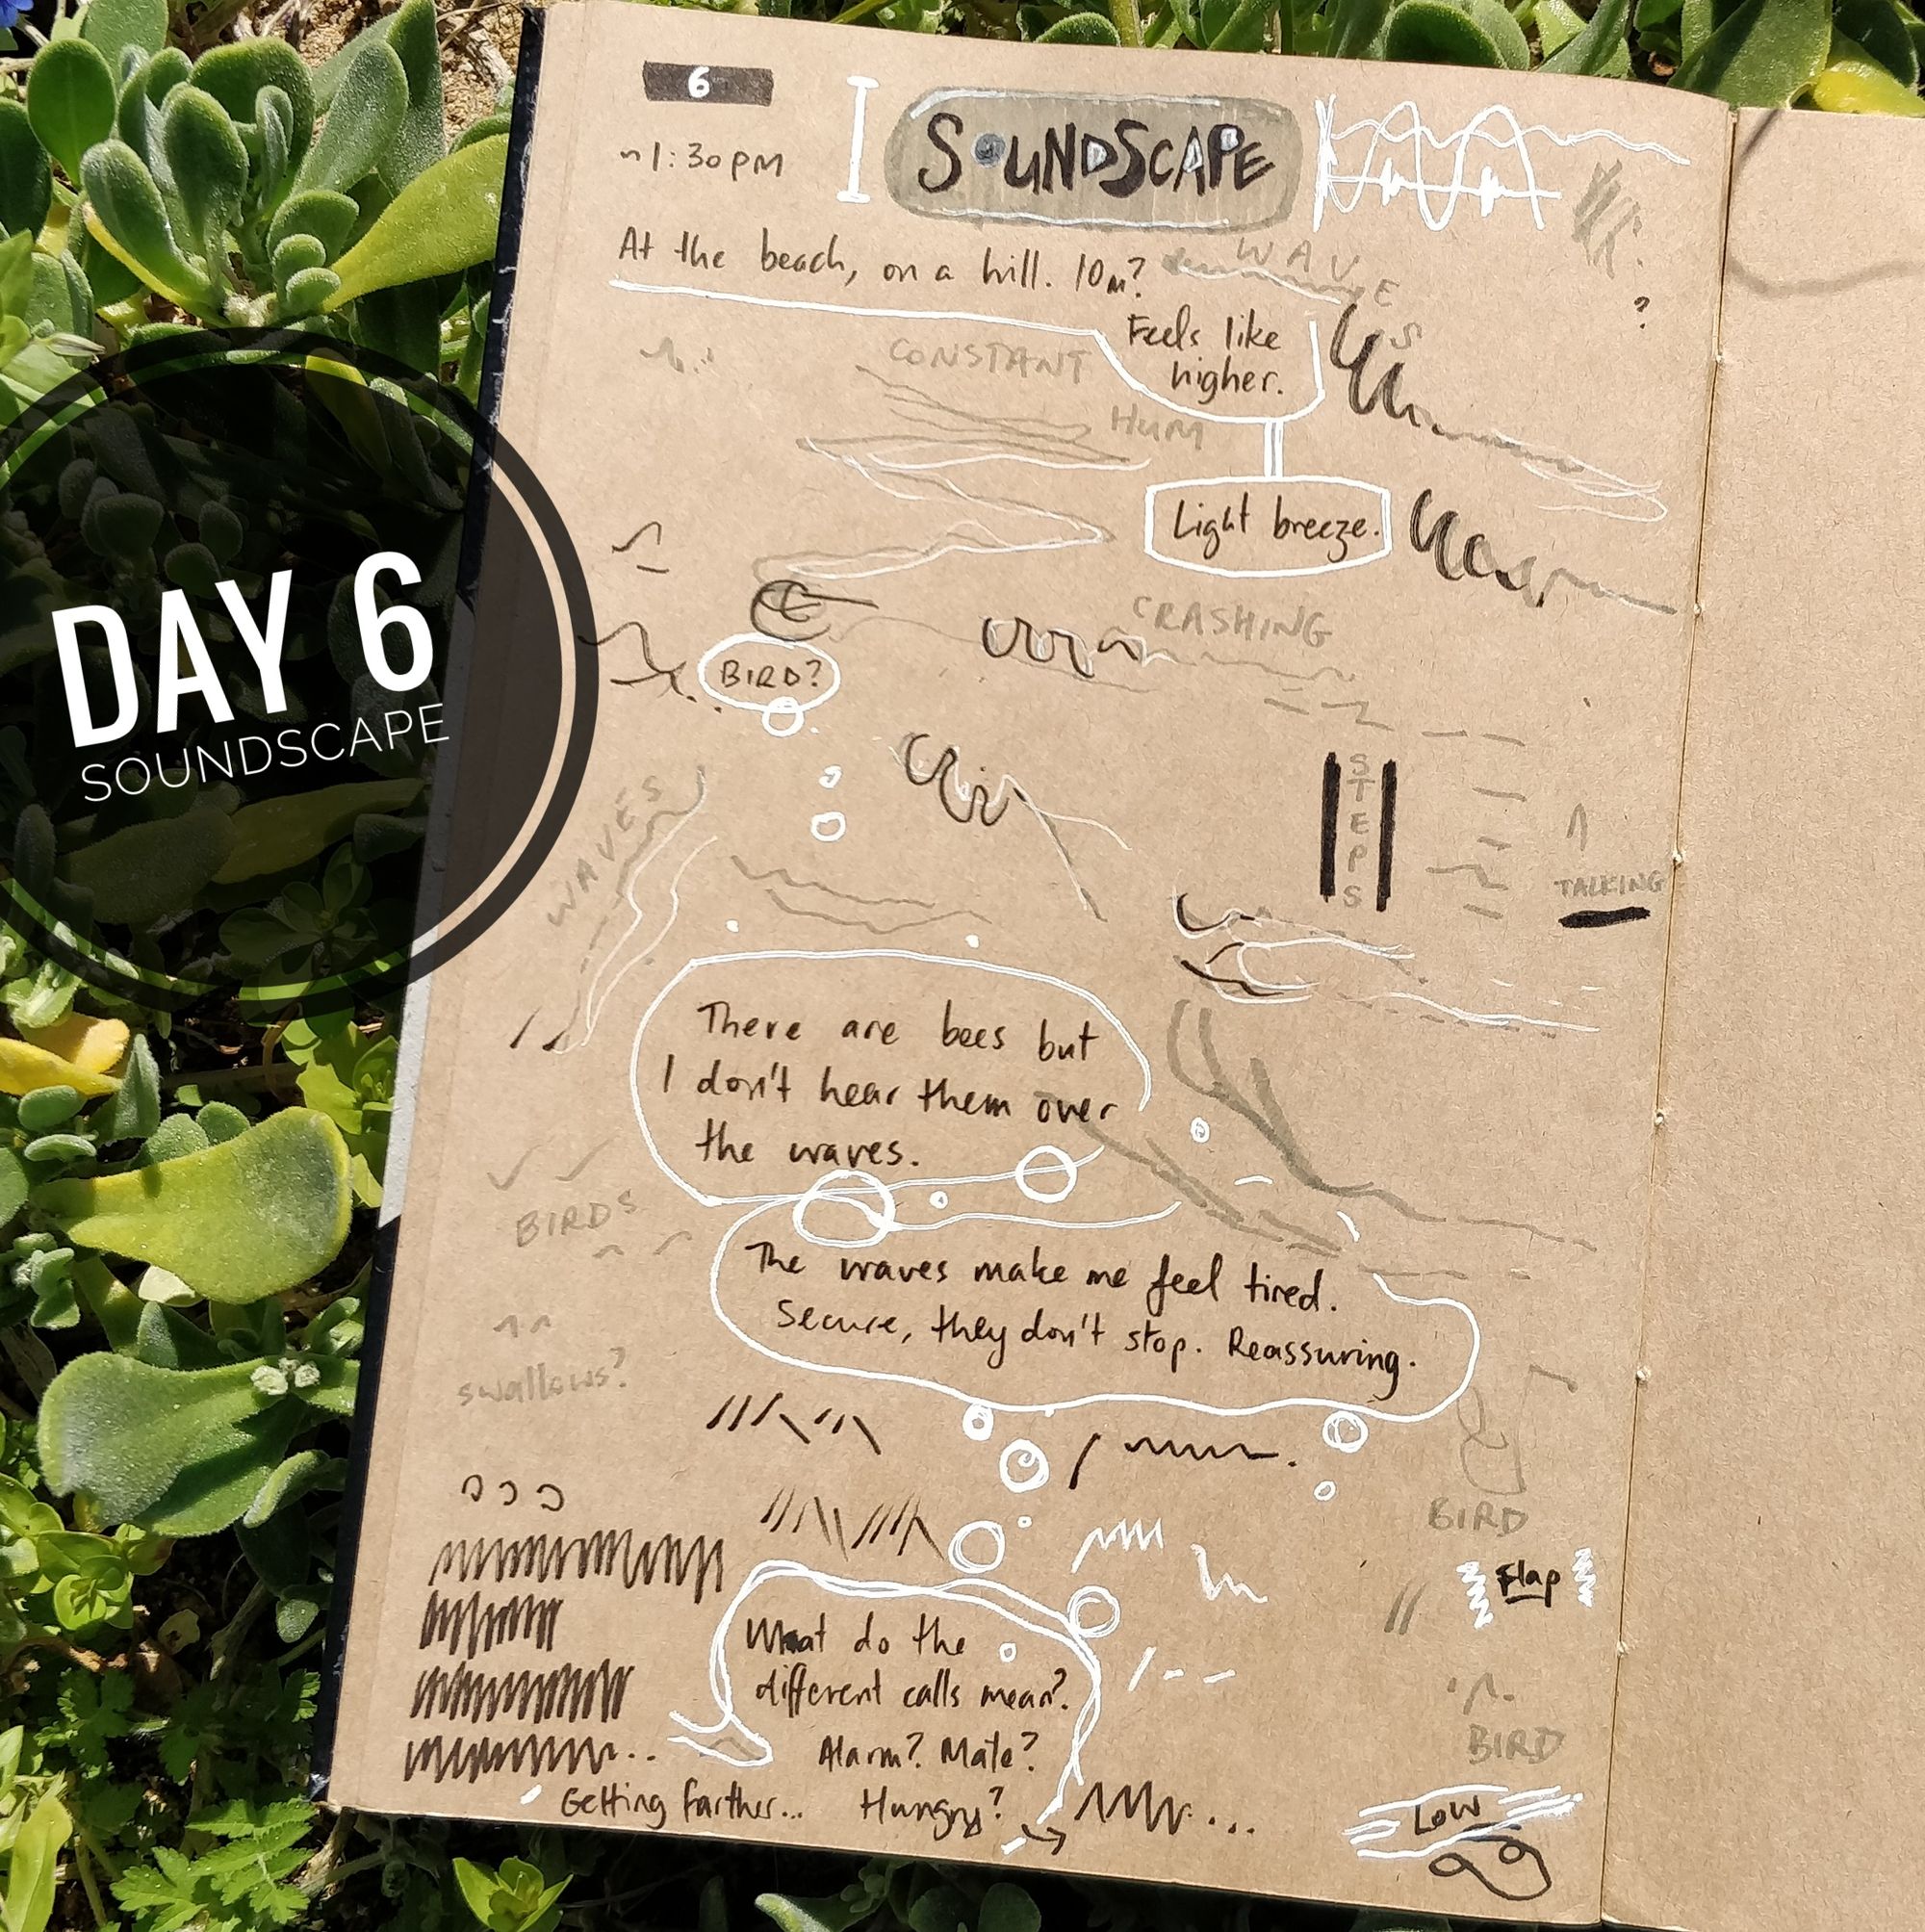 6
~1:30PM
SOUNDSCAPE
At the beach, on a hill. 10m?
WAVES
?
Feels like
higher.
CONSTANT
HUM
Light breeze.
CRASHING
BIRD?
DAY 6
SOUNDSCAPE
WAVES
STEPS
TALKING
There are bees but
I don't hear them over
the waves.
BIRDS
The waves make me feel tired.
Secure, they don't stop. Reassuring.
swallows?
BIRD
Flap
What do the
different calls mean?
Alarm? Mate?
Hungry?
Getting farther...
BIRD
LOW